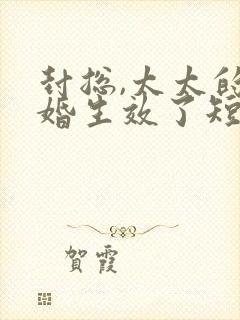 封总,太太的
婚生效了短
賀霞